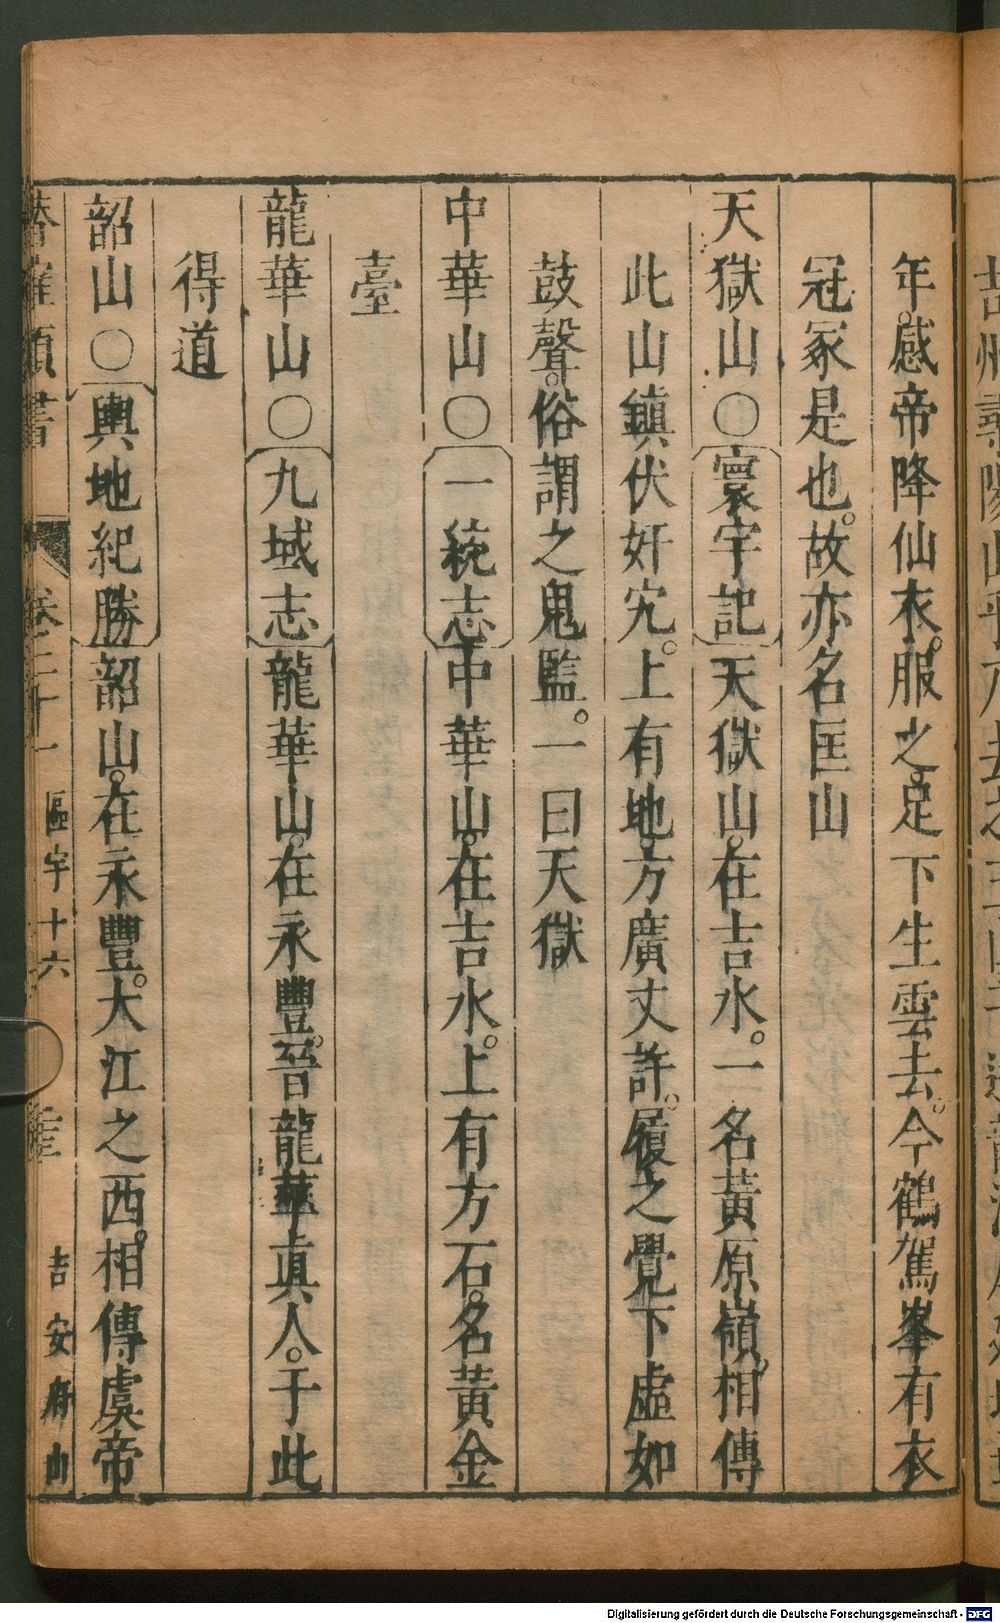 年。感帝降仙衣。服之。足下生雲去。今鶴駕峯有衣
冠冢是也。故亦名匡山
天獄山○寰宇記天獄山。在吉水。一名黃原嶺。相傳
此山鎮伏奸宄。上有地。方廣丈許。履之覺下虛如
鼓聲。俗謂之鬼監。一曰天獄
中華山○一統志中華山。在吉水。上有方石。名黃金
臺
龍華山○九域志龍華山。在永豐。晉龍華真人。于此
得道
韶山○輿地紀勝韶山。在永豐。大江之西。相傳虞帝
類書 卷二十一 區宇十六 吉安府山
Digitalisierung gefördert durch die Deutsche Forschungsgemeinschaft - DFG